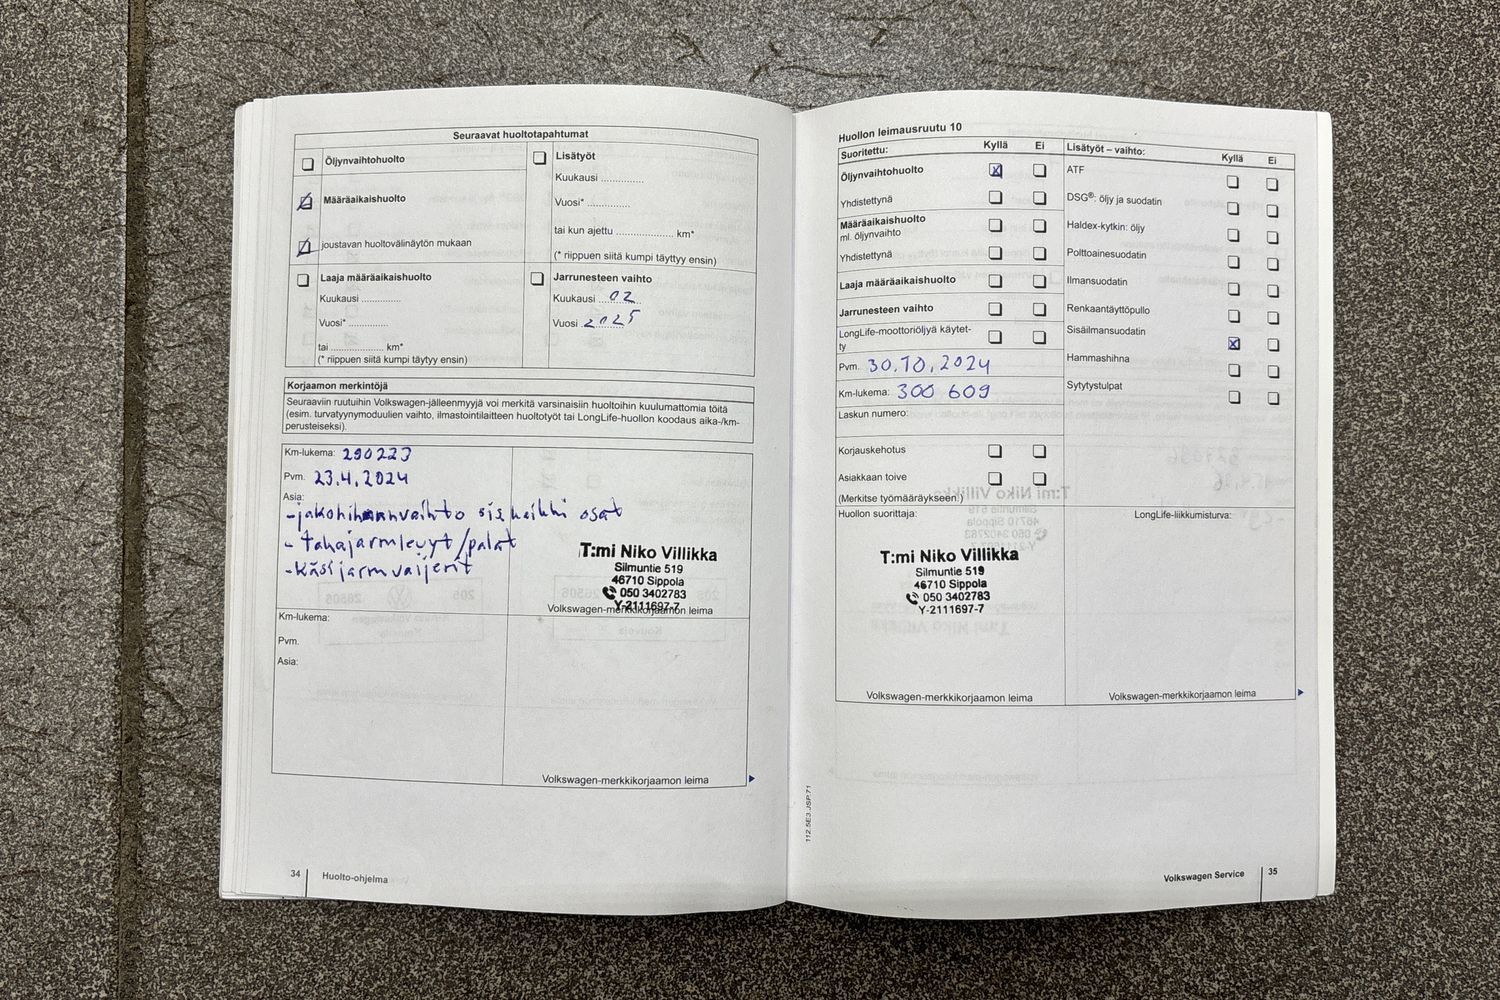 Seuraavat huoltotapahtumat
Öljynvaihtohuolto
Määräaikaishuolto
joustavan huoltovälinäytön mukaan
Lisätyöt
Kuukausi ..............
Vuosi* ..............
tai kun ajettu ................... km*
(* riippuen siitä kumpi täyttyy ensin)
Laaja määräaikaishuolto
Kuukausi .............
Vuosi* .............
tai .................. km*
(* riippuen siitä kumpi täytyy ensin)
Jarrunesteen vaihto
Kuukausi 02
Vuosi 2025
Korjaamon merkintöjä
Seuraaviin ruutuihin Volkswagen-jälleenmyyjä voi merkitä varsinaisiin huoltoihin kuulumattomia töitä
(esim. turvatyynymoduulien vaihto, ilmastointilaitteen huoltotyöt tai LongLife-huollon koodaus aika-/km-
perusteiseksi).
Km-lukema: 290223
Pvm. 23.4.2024
Asia:
-jakohihnanvaihto sis kaikki osat
- takajarrulevyt/palat
-käsijarruvaijerit
T:mi Niko Villikka
Silmuntie 519
46710 Sippola
050 3402783
Y-2111697-7
Volkswagen-merkkikorjaamon leima
Km-lukema:
Pvm.
Asia:
Volkswagen-merkkikorjaamon leima
34 Huolto-ohjelma
Huollon leimausruutu 10
Suoritettu: Kyllä Ei
Öljynvaihtohuolto
Yhdistettynä
Määräaikaishuolto
ml. öljynvaihto
Yhdistettynä
Laaja määräaikaishuolto
Jarrunesteen vaihto
LongLife-moottoriöljyä käytet-
ty
Pvm. 30.10.2024
Km-lukema: 300 609
Laskun numero:
Korjauskehotus
Asiakkaan toive
(Merkitse työmääräykseen!)
Lisätyöt – vaihto: Kyllä Ei
ATF
DSG®: öljy ja suodatin
Haldex-kytkin: öljy
Polttoainesuodatin
Ilmansuodatin
Renkaantäyttöpullo
Sisäilmansuodatin
Hammashihna
Sytytystulpat
Huollon suorittaja:
T:mi Niko Villikka
Silmuntie 519
46710 Sippola
050 3402783
Y-2111697-7
Volkswagen-merkkikorjaamon leima
LongLife-liikkumisturva:
Volkswagen-merkkikorjaamon leima
112.5E3.JSP.71
Volkswagen Service 35